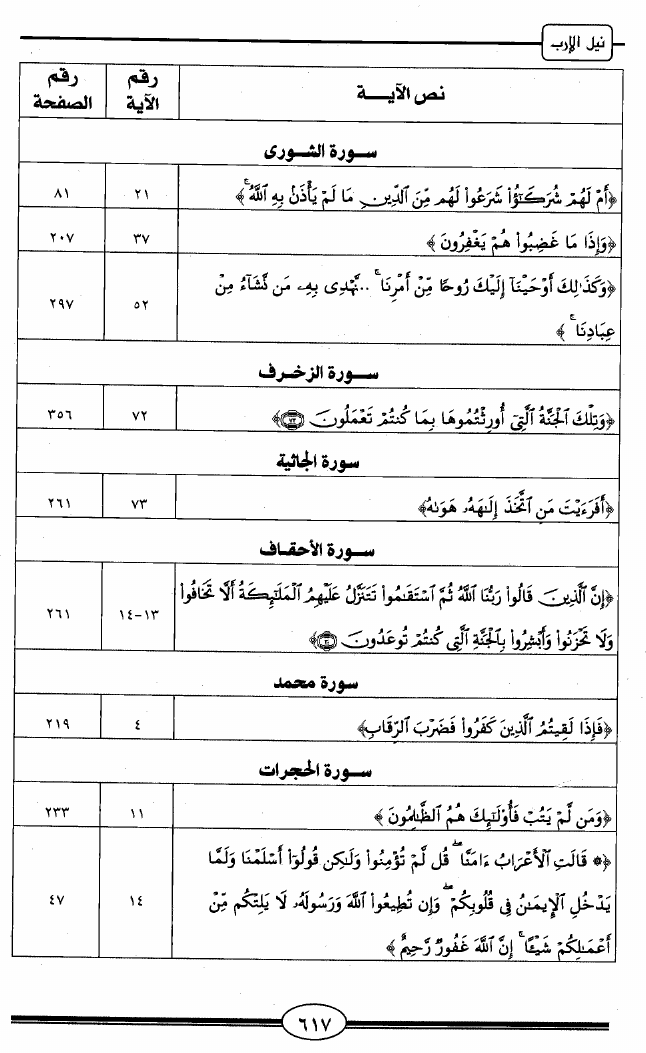 نيل الإرب
نص الآيـــة رقم الآية رقم الصفحة
سـورة الشـورى
﴿أَمْ لَهُمْ شُرَكَٰٓؤُا۟ شَرَعُوا۟ لَهُم مِّنَ ٱلدِّينِ مَا لَمْ يَأْذَنۢ بِهِ ٱللَّهُ ۚ﴾ ٢١ ٨١
﴿وَإِذَا مَا غَضِبُوا۟ هُمْ يَغْفِرُونَ﴾ ٣٧ ٢٠٧
﴿وَكَذَٰلِكَ أَوْحَيْنَآ إِلَيْكَ رُوحًا مِّنْ أَمْرِنَا ۚ ..نَّهْدِى بِهِۦ مَن نَّشَآءُ مِنْ
عِبَادِنَا ۚ﴾ ٥٢ ٢٩٧
سـورة الزخـرف
﴿وَتِلْكَ ٱلْجَنَّةُ ٱلَّتِىٓ أُورِثْتُمُوهَا بِمَا كُنتُمْ تَعْمَلُونَ ٧٢﴾ ٧٢ ٣٥٦
سورة الجاثية
﴿أَفَرَءَيْتَ مَنِ ٱتَّخَذَ إِلَٰهَهُۥ هَوَىٰهُ﴾ ٧٣ ٢٦١
سـورة الأحقـاف
﴿إِنَّ ٱلَّذِينَ قَالُوا۟ رَبُّنَا ٱللَّهُ ثُمَّ ٱسْتَقَٰمُوا۟ تَتَنَزَّلُ عَلَيْهِمُ ٱلْمَلَٰٓئِكَةُ أَلَّا تَخَافُوا۟
وَلَا تَحْزَنُوا۟ وَأَبْشِرُوا۟ بِٱلْجَنَّةِ ٱلَّتِى كُنتُمْ تُوعَدُونَ ٣٠﴾ ١٣-١٤ ٢٦١
سـورة محمد
﴿فَإِذَا لَقِيتُمُ ٱلَّذِينَ كَفَرُوا۟ فَضَرْبَ ٱلرِّقَابِ﴾ ٤ ٢١٩
سـورة الحجرات
﴿وَمَن لَّمْ يَتُبْ فَأُو۟لَٰٓئِكَ هُمُ ٱلظَّٰلِمُونَ﴾ ١١ ٢٣٣
﴿۞ قَالَتِ ٱلْأَعْرَابُ ءَامَنَّا ۖ قُل لَّمْ تُؤْمِنُوا۟ وَلَٰكِن قُولُوٓا۟ أَسْلَمْنَا وَلَمَّا
يَدْخُلِ ٱلْإِيمَٰنُ فِى قُلُوبِكُمْ ۖ وَإِن تُطِيعُوا۟ ٱللَّهَ وَرَسُولَهُۥ لَا يَلِتْكُم مِّنْ
أَعْمَٰلِكُمْ شَيْـًٔا ۚ إِنَّ ٱللَّهَ غَفُورٌ رَّحِيمٌ﴾ ١٤ ٤٧
٦١٧